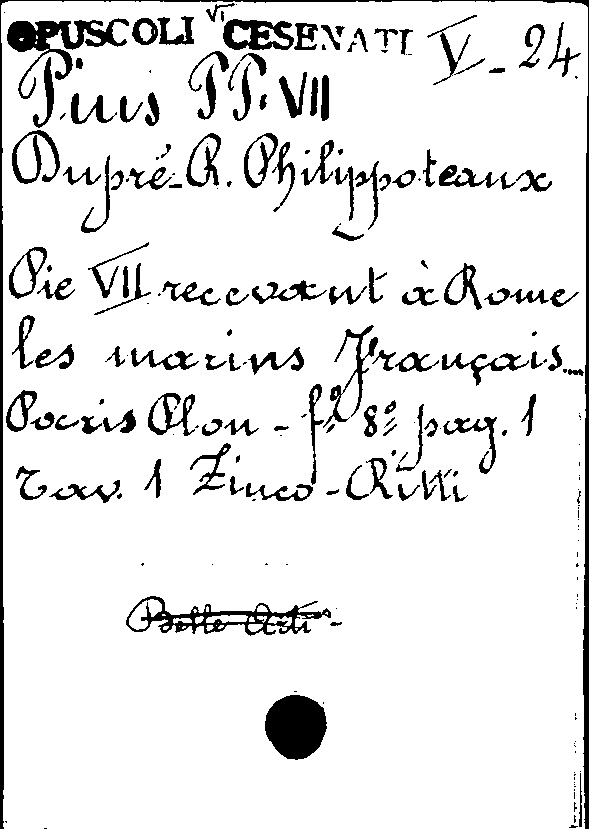 OPUSCOLI CESENATI V - 24
VI
Pius PP. VII
Dupré - R. Philippoteaux
Pie VII recevant à Rome
les marins français....
Paris Plon - fº 8º pag. 1
Tav. 1 Zinco - Ritti
Belle Arti -